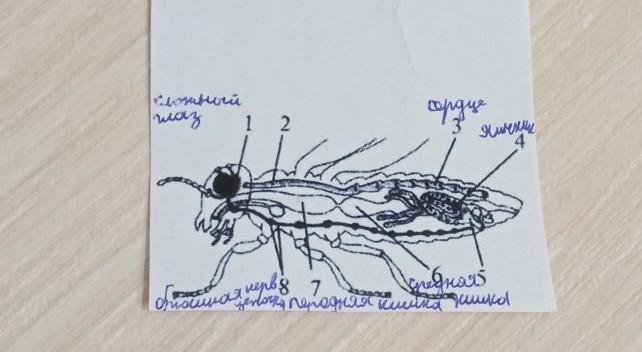 сложный
глаз
сердце
яичник
1 2 3 4
8 7 6 5
брюшная нерв цепочка
передняя кишка
средняя кишка